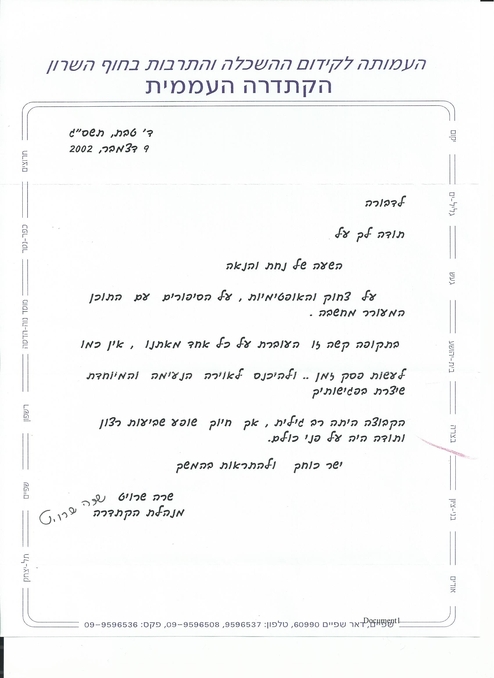 העמותה לקידום ההשכלה והתרבות בחוף השרון
הקתדרה העממית
ד' טבת, תשס"ג
9 דצמבר, 2002
לדבורה
תודה לך על
השעה של נחת והנאה
על צחוק והאופטימיות, על הסיפורים עם התוכן
המעורר מחשבה .
בתקופה קשה זו העוברת על כל אחד מאתנו , אין כמו
לעשות פסק זמן .. ולהיכנס לאוירה הנעימה והמיוחדת
שיצרת בפגישותיך
הקבוצה היתה רב גילית , אך חיוך שופע שביעות רצון
ותודה היה על פני כולם.
ישר כוחך ולהתראות בהמשך
שרה שרויט
מנהלת הקתדרה
יקום
גליל-ים
געש
בית-יהושע
בצרה
בני-ציון
אודים
חרוצים
כפר-נטר
מוסד נוה-הדסה
רשפון
שפיים
תל-יצחק
שפיים, דאר שפיים 60990, טלפון: 9596537, 09-9596508, פקס: 09-9596536
Document1